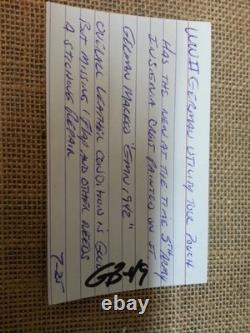 WWII GERMAN UTILITY TOOL POUCH
HAS THE NEW AT THE TIME 5TH ARMY
INSIGNIA CREST PAINTED ON IT
GERMAN MARKED "GMN 1942"
OVERALL LEATHER CONDITION IS GOOD
BUT MISSING 1 FLAP AND OTHER NEEDS
A STICHING REPAIR
GB-49
7-25